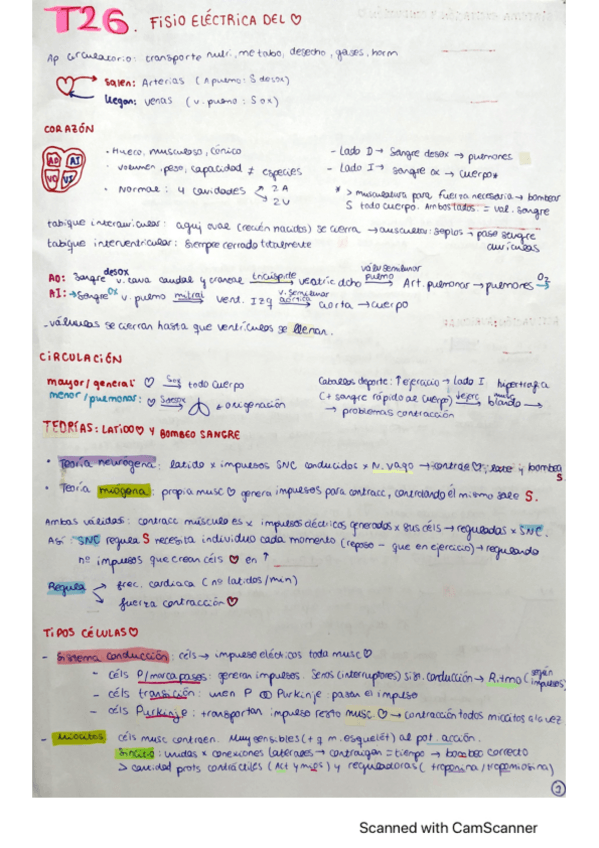 T26. FISIO ELÉCTRICA DEL ♡
Ap circulatorio: transporte nutri, metabo, desecho, gases, horm
Salen: Arterias (A pulmo: S desox)
Llegan: venas (v. pulmo: S ox)
CORAZÓN
AD AI
VD VI
· Hueco, musculoso, cónico
· volumen, peso, capacidad ≠ especies
· Normal: 4 cavidades 2 A
2 V
- Lado D → Sangre desox → pulmones
- Lado I → sangre ox → cuerpo*
* > musculatura para fuerza necesaria → bombear
S todo cuerpo. Ambos lados = vol. sangre
tabique interauricular: aquí oval (recién nacidos) se cierra → auscultar: soplos → paso sangre
aurículas
tabique interventricular: siempre cerrado totalmente
AD: Sangre desox v. cava caudal y craneal tricúspite → ventric dcho válv semilunar pulmo → Art. pulmonar → pulmones O₂
AI: → Sangre ox v. pulmo mitral → vent. Izq v. semilunar aórtica → aorta → cuerpo
- válvulas se cierran hasta que ventrículos se llenan.
CIRCULACIÓN
mayor/general: ♡ Sox → todo cuerpo
menor/pulmonar: ♡ Sdesox → oxigenación
Caballos deporte: ↑ ejercicio → lado I hipertrofia
(+ sangre rápido al cuerpo) musc blando →
→ problemas contracción
TEORÍAS: LATIDO ♡ Y BOMBEO SANGRE
· Teoría neurogena: latido x impulsos SNC conducidos x N. vago → contrae ♡, late y bombea
S.
· Teoría miógena: propia musc ♡ genera impulsos para contracc, controlando él mismo sale S.
Ambas válidas: contracc músculo es x impulsos eléctricos generados x sus céls → reguladas x SNC.
Así SNC regula S necesita individuo cada momento (reposo - que en ejercicio) → regulando
nº impulsos que crean céls ♡ en ↑
Regula → frec. cardiaca (nº latidos/min)
→ fuerza contracción ♡
TIPOS CÉLULAS ♡
- Sistema conducción: céls → impulso eléctricos toda musc ♡
- céls P/marcapasos: generan impulsos. Senos (interruptores) sist. conducción → Ritmo (según
impulsos)
- céls transición: unen P Purkinje: pasan el impulso
- céls Purkinje: transportan impulso resto musc. ♡ → contracción todos miocitos a la vez
- Miocitos céls musc contraen. Muy sensibles (+ q m. esquelét) al pot. acción.
Sincitio: unidas x conexiones laterales → contraigan = tiempo → bombeo correcto
> cantidad prots contráctiles (Act y mios) y reguladoras (troponina/tropomiosina)
1
Scanned with CamScanner